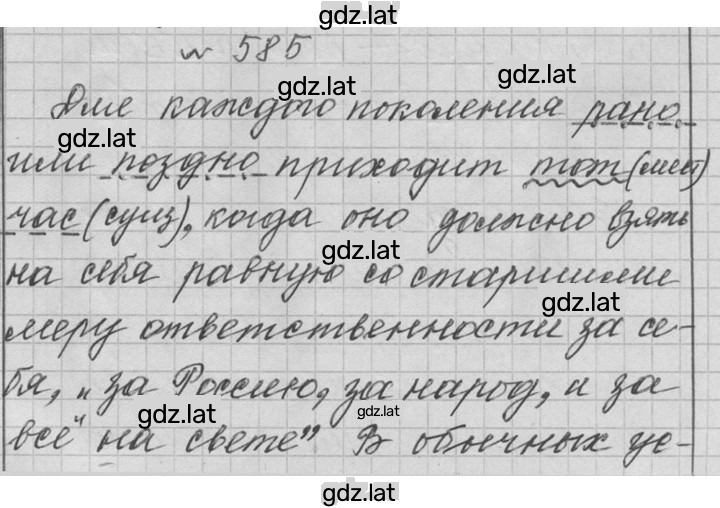 gdz.lat
№ 585
gdz.lat
gdz.lat
Для каждого поколения рано
gdz.lat
или поздно приходит тот (мест)
час (сущ), когда оно должно взять
gdz.lat
на себя равную со старшими
gdz.lat
меру ответственности за се-
бя, „за Россию, за народ, и за
gdz.lat
gdz.lat
всё" на свете” В обычных ус-
gdz.lat